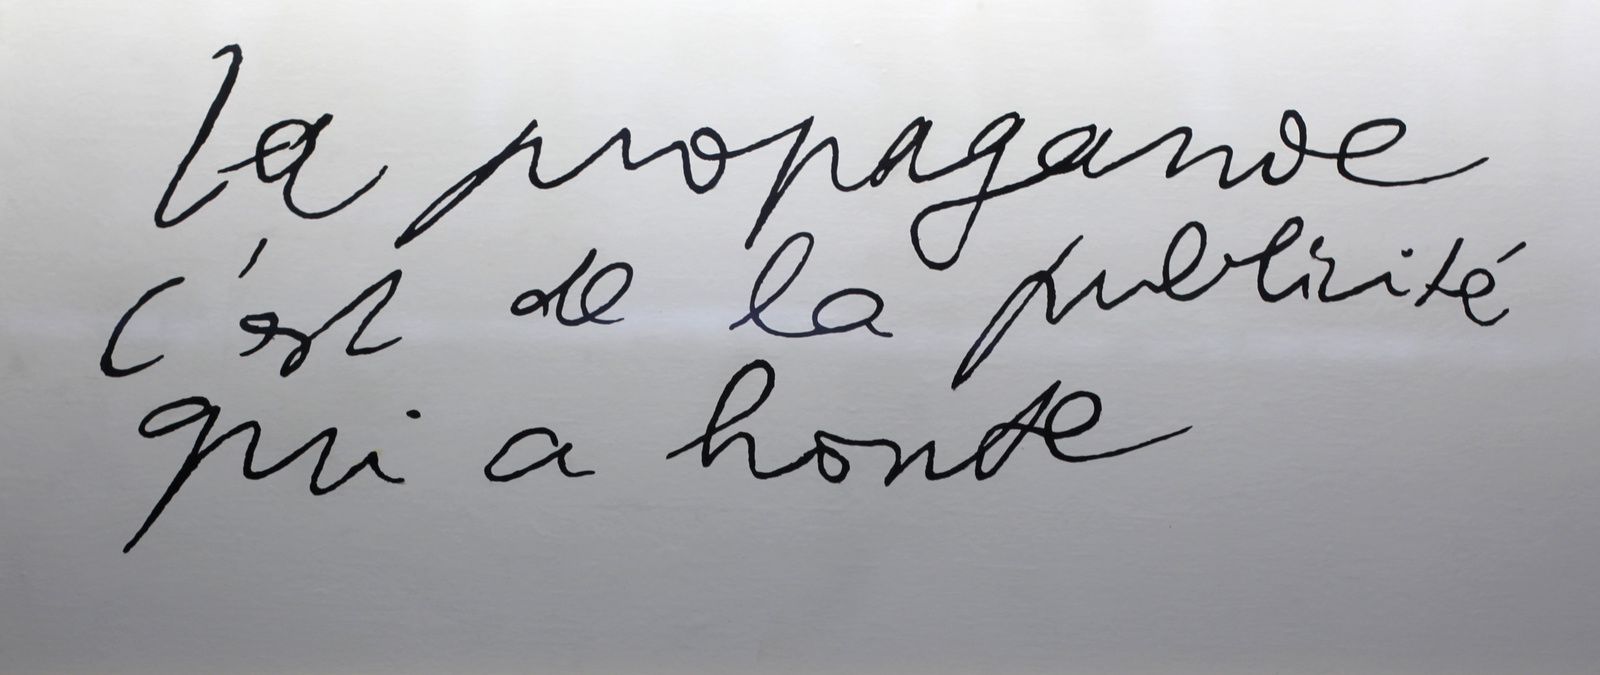 La propagande
c'est de la publicité
qui a honte